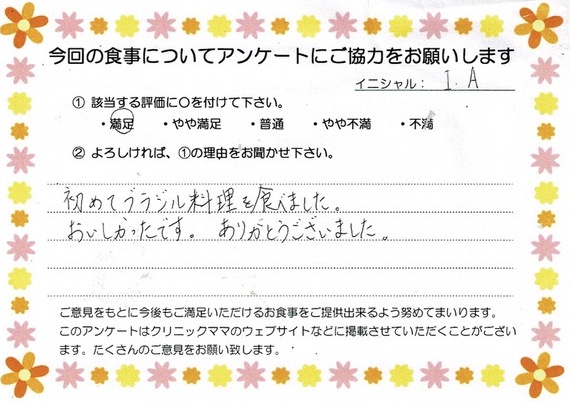 今回の食事についてアンケートにご協力をお願いします
イニシャル： I. A
① 該当する評価に〇を付けて下さい。
・満足 ・やや満足 ・普通 ・やや不満 ・不満
② よろしければ、①の理由をお聞かせ下さい。
初めてブラジル料理を食べました。
おいしかったです。 ありがとうございました。
ご意見をもとに今後もご満足いただけるお食事をご提供出来るよう努めてまいります。
このアンケートはクリニックママのウェブサイトなどに掲載させていただくことがござい
ます。たくさんのご意見をお願い致します。